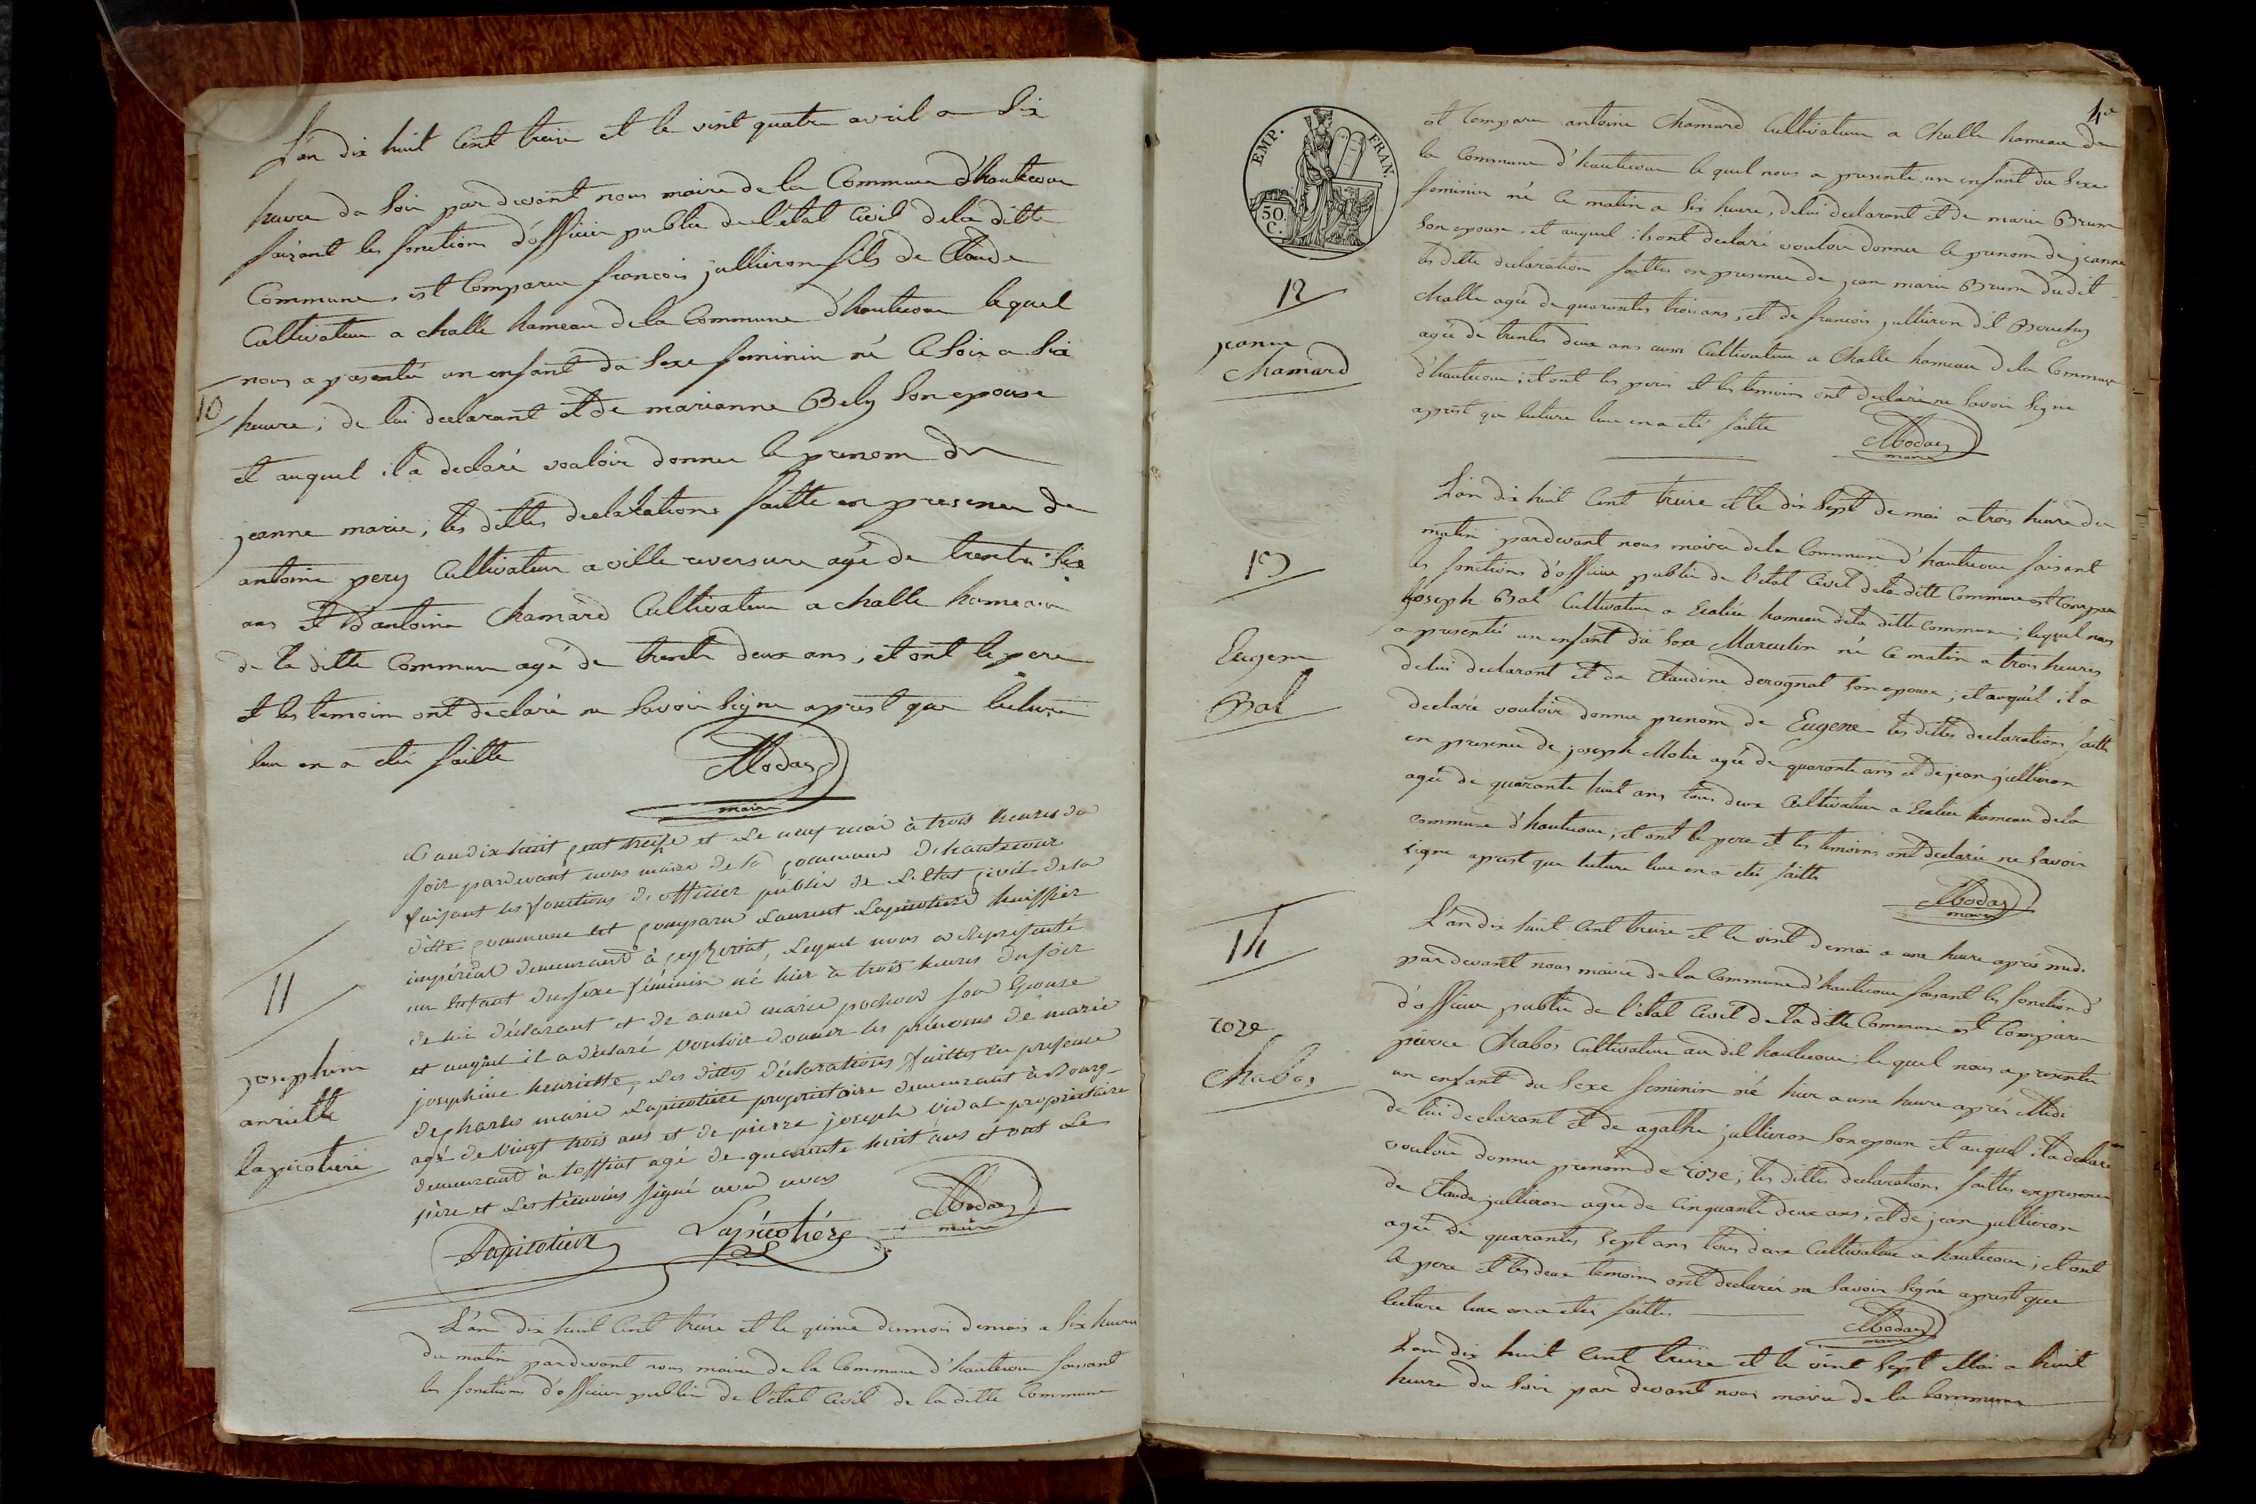 L'an dix huit Cent treize et le vint quatre avril a Six
heure du Soir par devant nous maire de la Commune d'hautecour
faizant les fonctions d'officier public de l'état Civil de la ditte
Commune, est Comparu francois jullieron fils de Claude
Cultivateur a challe hameau de la Commune d'hautecour lequel
nous a présenté un enfant du Sexe feminin né Ce Soir a Six
10
heure; de lui declarant et de marianne Bely Son epouse
et auquel il a declaré vouloir donner le prenom de
jeanne marie; les dittes declarations faitte en presence de
antoine pery Cultivateur a ville reversure agé de trente Six
ans et d'antoine Chamard Cultivateur a challe hameau
de la ditte Commune agé de trente deux ans; et ont le pere
et les temoins ont declaré ne Savoir Signe aprest que lecture
leur en a été faitte
Modas
maire
L'an dix huit cent treize et le neuf mai à trois heures du
soir pardevant nous maire de la commune d'hautecour
faisant les fonctions d'officier public de l'Etat civil de la
ditte commune est comparu Laurent Lapicotiere huissier
impérial demeurant à ceyzeriat, Lequel nous a représenté
un Enfant du sexe féminin né hier à trois heures du soir
11
de lui déclarant et de anne marie pochon son Epouse
et auquel il a déclaré vouloir donner les prénoms de marie
josephine
anriette
lapicotierè
josephine henriette, Les dittes déclarations faittes en presence
de charles marie Lapicotiere proprietaire demeurant à Bourg
agé de vingt trois ans et de pierre joseph vidal proprietaire
demeurant à toffiat agé de quarante huit ans et ont Le
père et Les témoins signé avec nous
Lapicotiere Lapicotiere Modas
maire
L'an dix huit Cent treize et le quinze du mois de mais a Six heures
du matin par devant nous maire de la Commune d'hautecour faisant
les fonctions d'officier public de l'état Civil de la ditte Commune
4e
EMP. FRAN.
50.
C.
est Comparu antoine Chamard Cultivateur a Challe hameau de
la Commune d'hautecour le quel nous a presenté un enfant du Sexe
feminin né Ce matin a Six heure, de lui declarant et de marie Brun
Son epouse, et auquel ils ont declaré vouloir donner le prenom de jeanne
12
les ditte declaration faittes en presence de jean marie Brun du dit
challe agée de quarantes trois ans, et de francois jullieron dit Bouchy
jeanne
chamard
agée de trentes deux ans aussi Cultivateur a Challe hameau de la Commune
d'hautecour; et ont les peres et les temoins ont declaré ne Savoir Signe
aprest que lecture leur en a été faitte
Modas
maire
L'an dix huit Cent treize et le dix Sept de mai a trois heure du
matin pardevant nous maire de la Commune d'hautecour faisant
13
les fonctions d'officier public de l'etat Civil de la ditt Commune est Comparu
joseph Bal Cultivateur a hameau de la ditte Commune; lequel nous
a presenté un enfant du Sexe Masculin né Ce matin a trois heures
Eugene
Bal
de lui declarant et de Claudine derognat Son epouse; et auquel il a
declaré vouloir donner prenom de Eugene les dittes declarations faitte
en presence de joseph Motie agée de quarante ans et de jean jullieron
agée de quarante huit ans tous deux Cultivateur a hameau de la
commune d'hautecour; et ont le pere et les temoins ont declarée ne Savoir
signe aprest que lecture leur en a été faitte
Modas
maire
14
L'an dix huit Cent treize et le vint de mai a une heure aprés midi
par devant nous maire de la Commune d'hautecour faisant les fonctions
d'officier public de l'état Civil de la ditte Commune est Comparu
roze
Chabos
pierre Chabos Cultivateur au dit hautecour; le quel nous a presenté
un enfant du Sexe feminin né hier a une heure aprés Midi
de lui declarant et de agathe jullieron Son epouse et auquel il a declaré
vouloir donner prenom de roze; les dittes declarations faittes en presence
de Claude jullieron agée de Cinquante deux ans, et de jean jullieron
agée de quarantes Sept ans tous deux Cultivateur a hautecour; et ont
le pere et les deux temoins ont declarée ne Savoir Signé aprest que
lecture leur en a été faittes
Modas
maire
L'an dix huit Cent treize et le vint Sept Mai a huit
heure du Soir par devant nous maire de la Commune